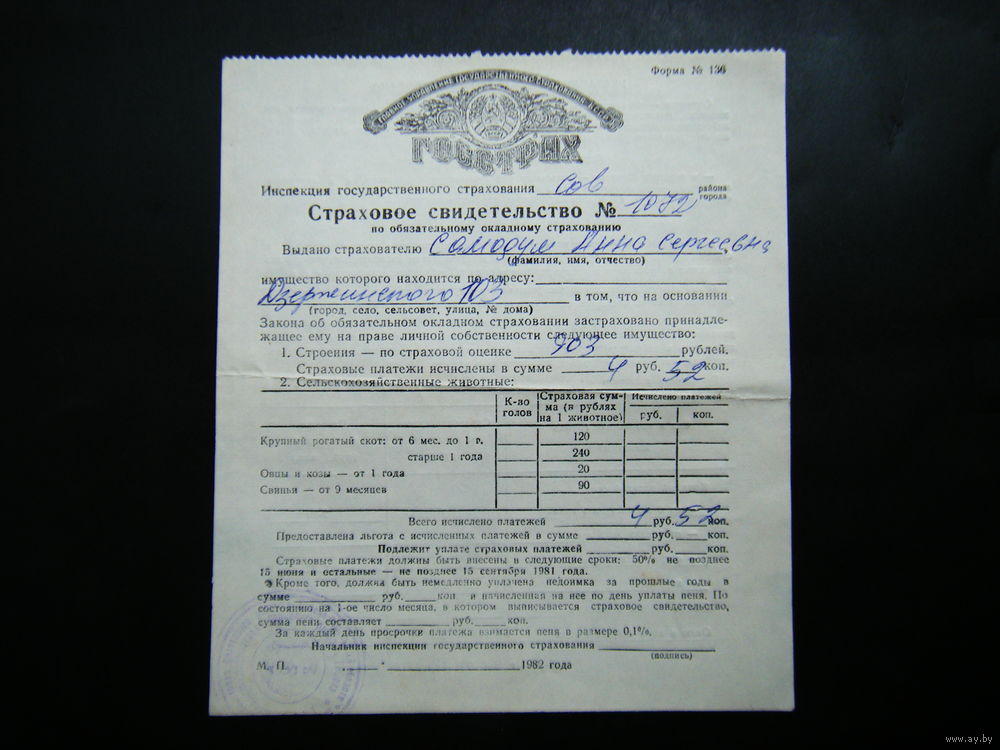 Форма № 136
ГЛАВНОЕ УПРАВЛЕНИЕ ГОСУДАРСТВЕННОГО СТРАХОВАНИЯ
ГОССТРАХ
Инспекция государственного страхования Сов района
города
Страховое свидетельство № 1072
по обязательному окладному страхованию
Выдано страхователю Самодум Анна Сергеевна,
(фамилия, имя, отчество)
имущество которого находится по адресу:
Дзержинского 103 в том, что на основании
(город, село, сельсовет, улица, № дома)
Закона об обязательном окладном страховании застраховано принадле-
жащее ему на праве личной собственности следующее имущество:
1. Строения — по страховой оценке 903 рублей.
Страховые платежи исчислены в сумме 4 руб. 52 коп.
2. Сельскохозяйственные животные:
К-во голов Страховая сум-ма (в рублях на 1 животное) Исчислено платежей
руб. коп.
Крупный рогатый скот: от 6 мес. до 1 г. 120
старше 1 года 240
Овцы и козы — от 1 года 20
Свиньи — от 9 месяцев 90
Всего исчислено платежей 4 руб. 52 коп.
Предоставлена льгота с исчисленных платежей в сумме руб. коп.
Подлежит уплате страховых платежей руб. коп.
Страховые платежи должны быть внесены в следующие сроки: 50% не позднее
15 июня и остальные — не позднее 15 сентября 1981 года.
Кроме того, должна быть немедленно уплачена недоимка за прошлые годы в
сумме руб. коп и начисленная на нее по день уплаты пеня. По
состоянию на 1-ое число месяца, в котором выписывается страховое свидетельство,
сумма пени составляет руб. коп.
За каждый день просрочки платежа взимается пеня в размере 0,1%.
Начальник инспекции государственного страхования
(подпись)
М. П. 1982 года
www.ay.by